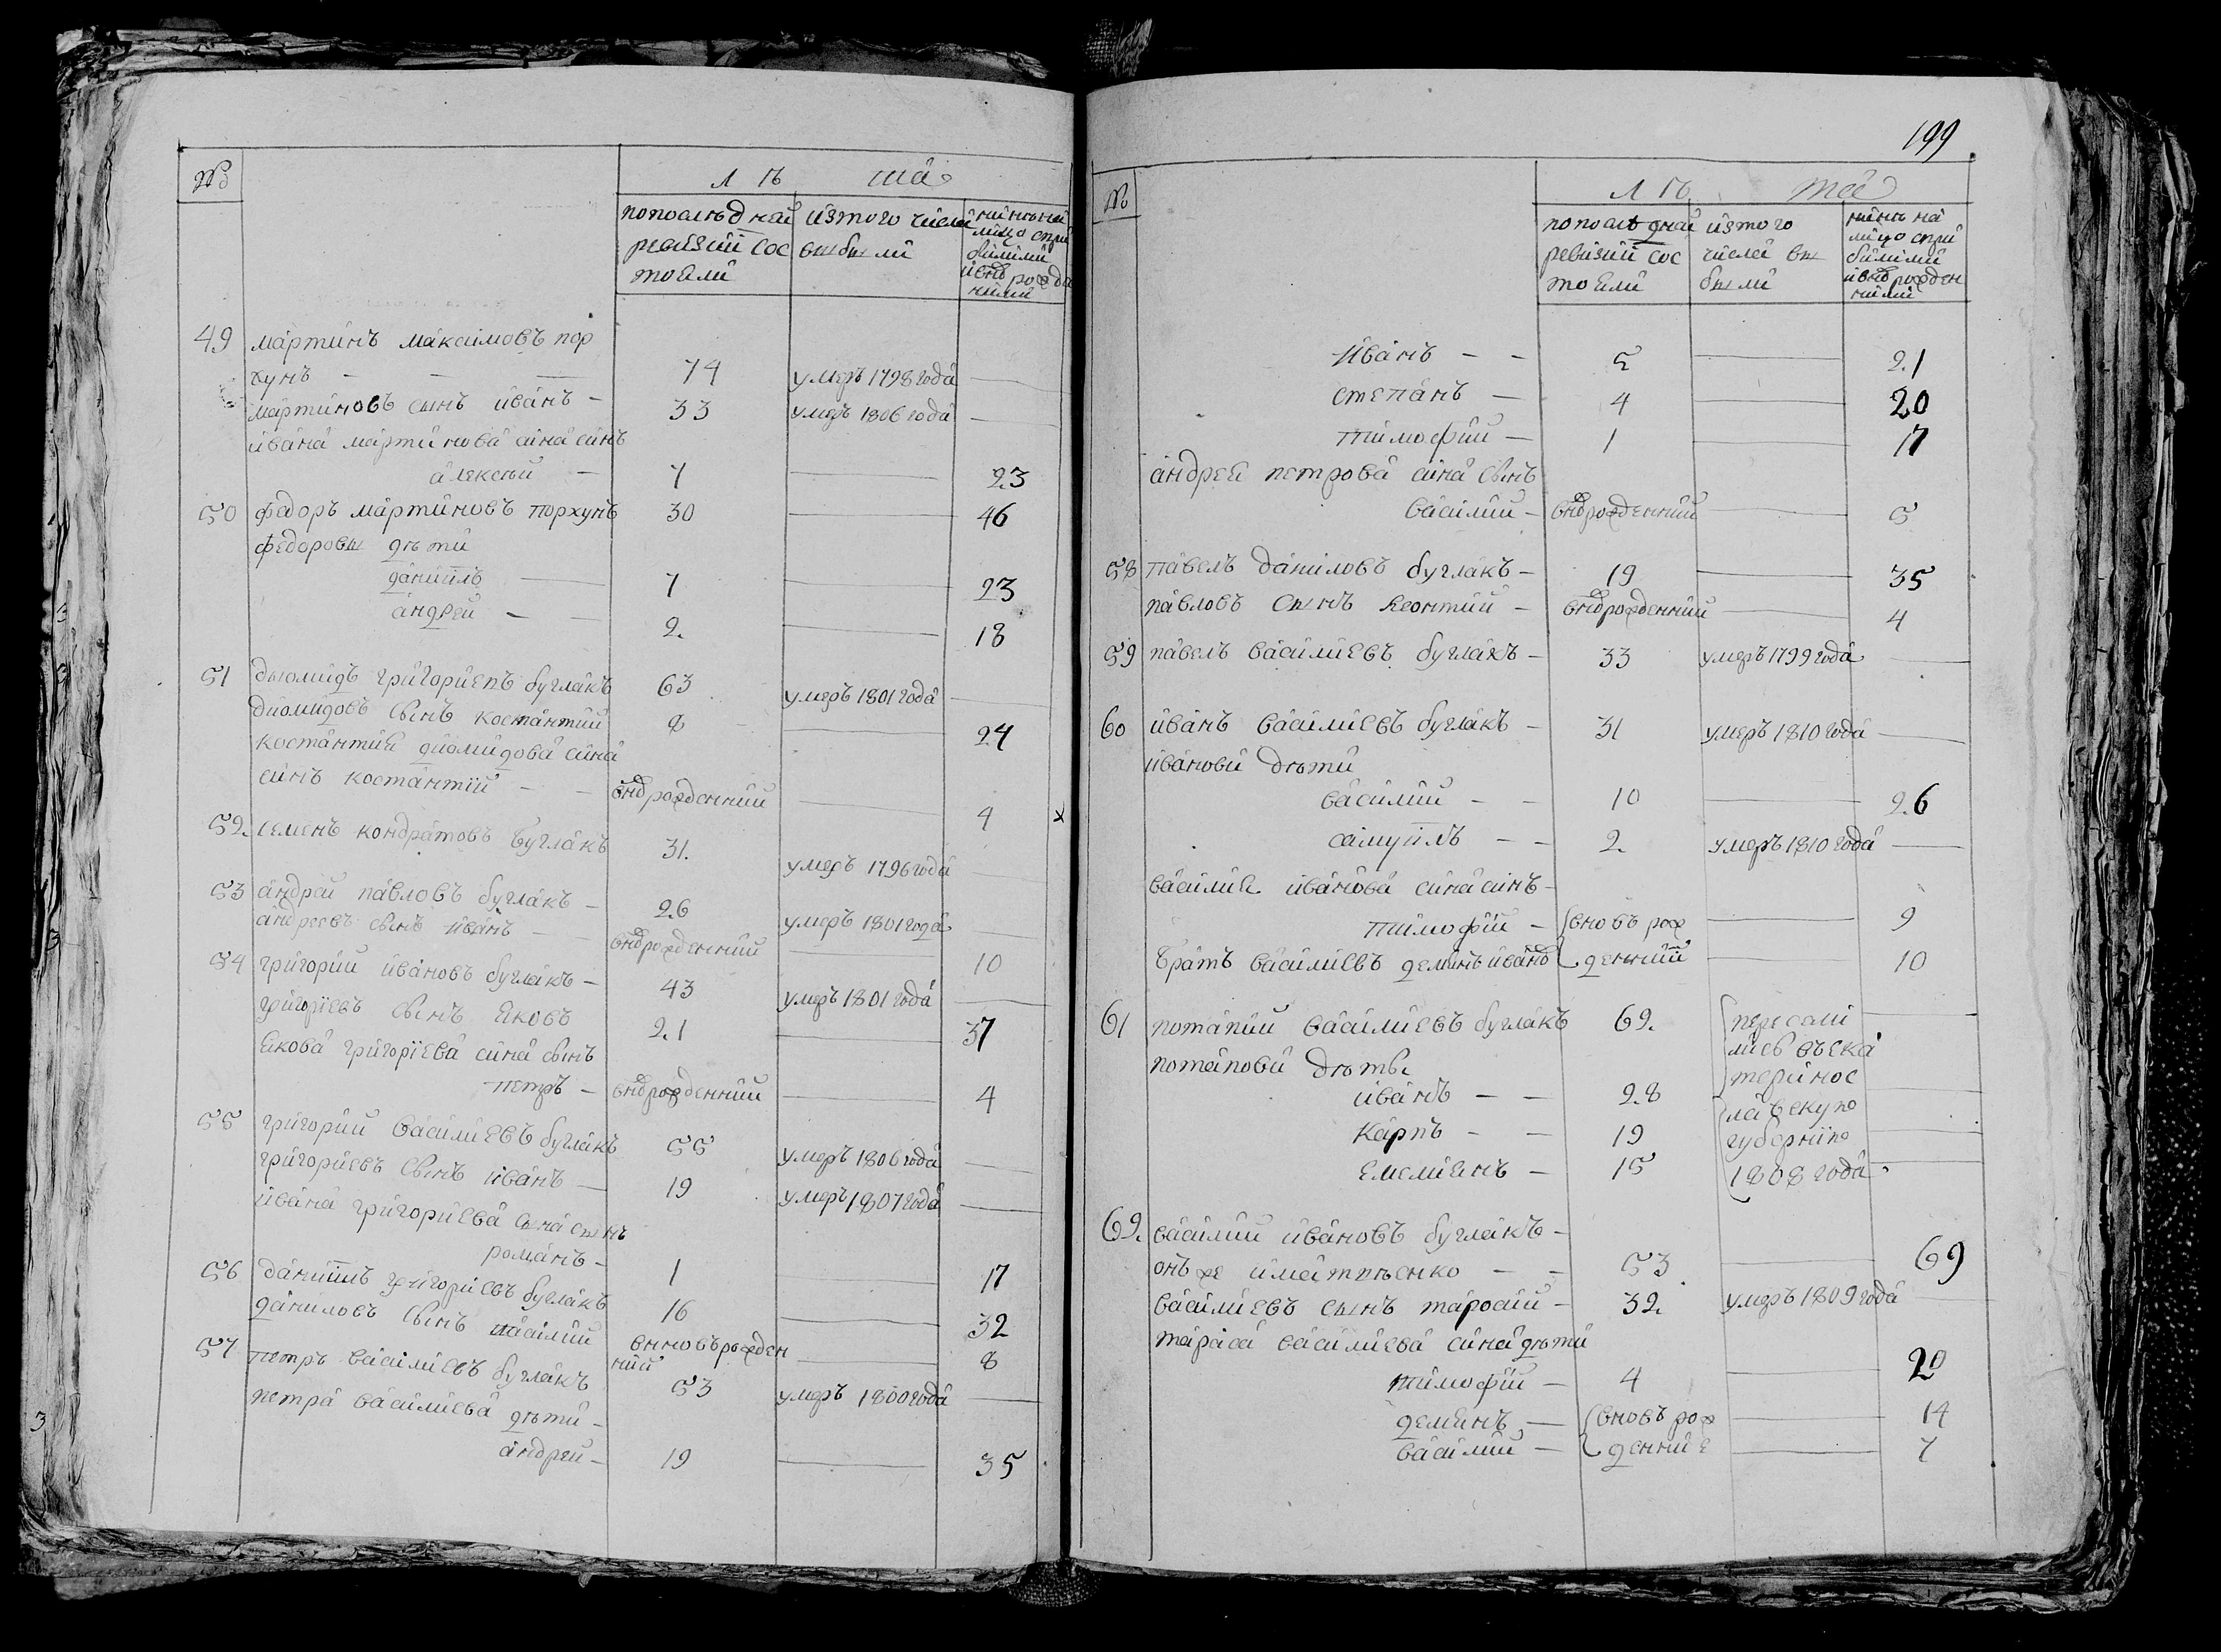 №
лѣ та
по последней ревизии состояли
из того числа выбыли
нине на лицо с прибилими и внов рожденими
49 мартинъ максимовъ пор
хунъ — 74 умеръ 1798 года —
мартиновъ сынъ иванъ — 33 умеръ 1806 года —
ивана мартинова сина синъ
алексѣй — 7 — 23
50 федоръ мартиновъ порхунъ 30 — 46
федоровы дѣти
даниилъ — 7 — 23
андрей — 2. — 18
51 дыомидъ григориевъ буглакъ 63 умеръ 1801 года —
диомидовъ сынъ костантий 8 — 24
костантия диомидова сина
синъ костантий — внов рожденний — 4
52. семенъ кондратовъ буглакъ 31. умеръ 1796 года —
53 андрей павловъ буглакъ — 26 умеръ 1801 года —
андреевъ сынъ иванъ — внов рожденний — 10
54 григорий ивановъ буглакъ — 43 умеръ 1801 года —
григориевъ сынъ яковъ 21 — 37
якова григориева сина сынъ
петръ — внов рожденний — 4
55 григорий василиевъ буглакъ 55 умеръ 1806 года —
григориевъ сынъ иванъ — 19 умеръ 1807 года —
ивана григориева сына сынъ
романъ — 1 — 17
56 даниилъ григориевъ буглакъ 16 — 32
даниловъ сынъ василий вновъ рожден
ний — 8
57 петръ василиевъ буглакъ 53 умеръ 1800 года —
петра василиева дѣти —
андрей — 19 — 35
199
№
лѣ та
по последней ревизии состояли
из того числа выбыли
нинѣ на лицо с прибилими и внов рожденними
иванъ — 5 — 21
степанъ — 4 — 20
тимофий — 1 — 17
андрея петрова сина сынъ
василий — внов рожденний — 5
58 павелъ даниловъ буглакъ — 19 — 35
павловъ сынъ леонтий — внов рожденний — 4
59 павелъ василиевъ буглакъ — 33 умеръ 1799 года —
60 иванъ василиевъ буглакъ — 31 умеръ 1810 года —
иванови дѣти
василий — 10 — 26
самуилъ — 2. умеръ 1810 года —
василия иванова сина синъ —
тимофий — вновъ рож — 9
братъ василиевъ демянъ иванов денний — 10
61 потапий василиевъ буглакъ 62. пересели —
потапови дѣти лися въ ека
иванъ — 28 теринос —
лавскую
карпъ — 19 губернию —
емелиянъ — 15 1808 года —
62. василий ивановъ буглакъ —
онъ же — 53 — 69
василиевъ сынъ тарасий — 32. умеръ 1809 года —
тараса василиева сина дѣти
тимофий — 4 — 20
демянъ — вновъ рож — 14
василий — денние — 7